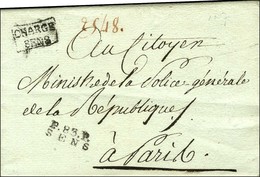 CHARGÉ
SENS
25/48.
Au Citoyen
Ministre de la Police générale
de la République
P. 83. P.
SENS
à Paris.